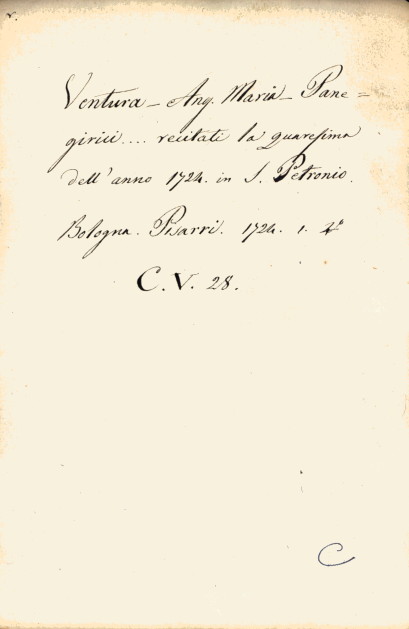 v.
Ventura - Ang. Maria - Pane=
girici.... recitati la quaresima
dell'anno 1724. in S. Petronio.
Bologna. Pisarri. 1724. 1. 4°
C. V. 28.
C